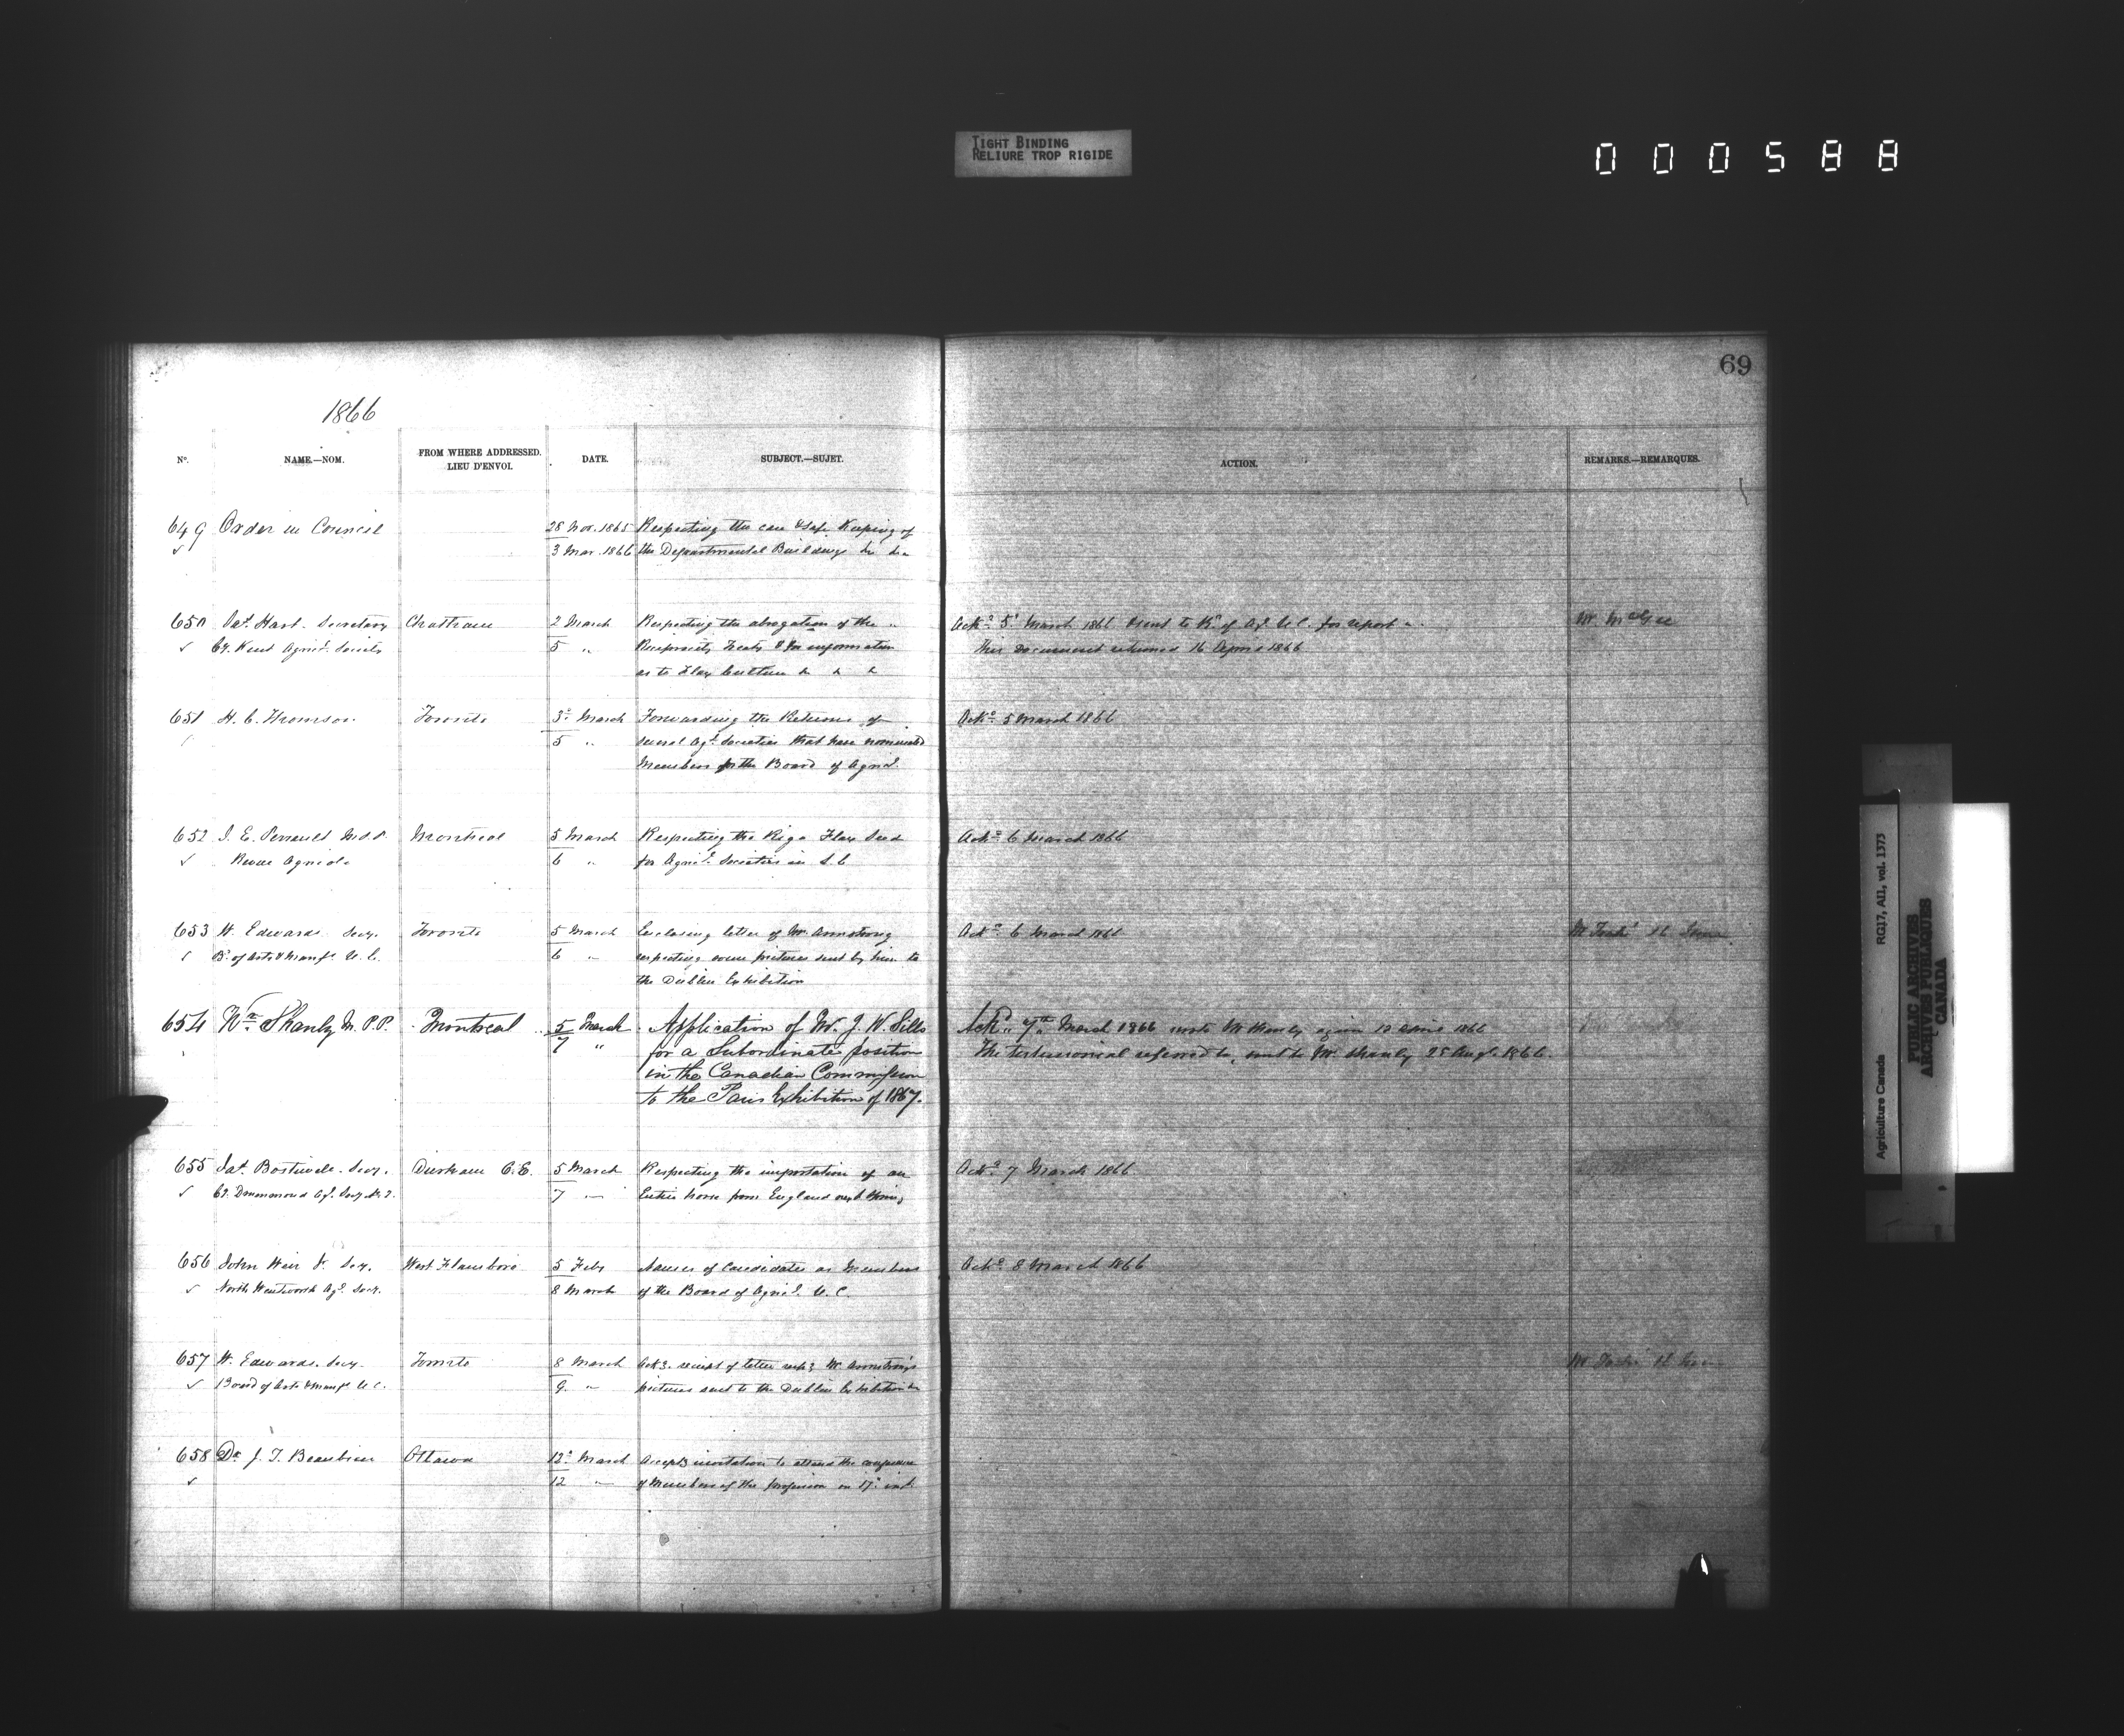 TIGHT BINDING
RELIURE TROP RIGIDE
000588
69
1866
No. NAME.—NOM. FROM WHERE ADDRESSED. LIEU D'ENVOI. DATE. SUBJECT.—SUJET. ACTION. REMARKS.—REMARQUES.
649 Order in Council 28 Nov. 1865 Respecting the care & safe Keeping of
3 Mar. 1866 the Departmental Buildings
650 Jas. Hart. Secretary Chatham 2 March Respecting the abrogation of the Ackd. 5 March 1866 & sent to Bd. of Agl. U.C. for report Mr. McGee
Co. Kent Agricl. Society 5 " Reciprocity Treaty & for information This document returned 16 April 1866
as to Flax Culture & & &
651 H. C. Thomson Toronto 3d. March Forwarding the Returns of Ackd. 5 March 1866
5 " several Agl. Societies that have nominated
Members for the Board of Agricl.
652 J. E. Perrault M.P.P. Montreal 5 March Respecting the Riga Flax Seed Ackd. 6 March 1866
Revue Agricole 6 " for Agricl. Societies in L.C
653 W. Edwards Secy. Toronto 5 March Enclosing letter of Mr. Armstrong Ackd. 6 March 1866 Mr Taché 16
Bd. of Arts & Manfs. U.C. 6 " respecting some pictures sent by him to
the Dublin Exhibition
654 Wm. Shanly M.P.P. Montreal 5 March Application of Mr. J. W. Sills Ackd. 7th. March 1866 wrote Mr Shanly again 1866
7 " for a Subordinate position The testimonial referred to, sent to Mr. Shanly 25 Augt. 1866.
in the Canadian Commission
to the Paris Exhibition of 1867.
655 Jas. Bostwick. Secy. Durham C.E. 5 March Respecting the importation of an Ackd. 7 March 1866
Co. Drummond Agl. Socy. No. 2. 7 " Entire horse from England next Spring
656 John Weir Jr. Secy. West Flamboro 5 Feby Names of Candidates as Members Ackd. 8 March 1866
North Wentworth Agl. Socy. 8 March of the Board of Agricl. U.C.
657 W. Edwards. Secy. Toronto 8 March Ackg. receipt of letter respg. Mr Armstrong's Mr Taché
Board of Arts & Manfs U.C. 9 " pictures sent to the Dublin Exhibition
658 Dr. J. T. Beaubien Ottawa 12. March Accepts invitation to attend the conference
12 " of Members of the profession on 17. inst.
Agriculture Canada RG17, AI1, vol. 1373
PUBLIC ARCHIVES
ARCHIVES PUBLIQUES
CANADA